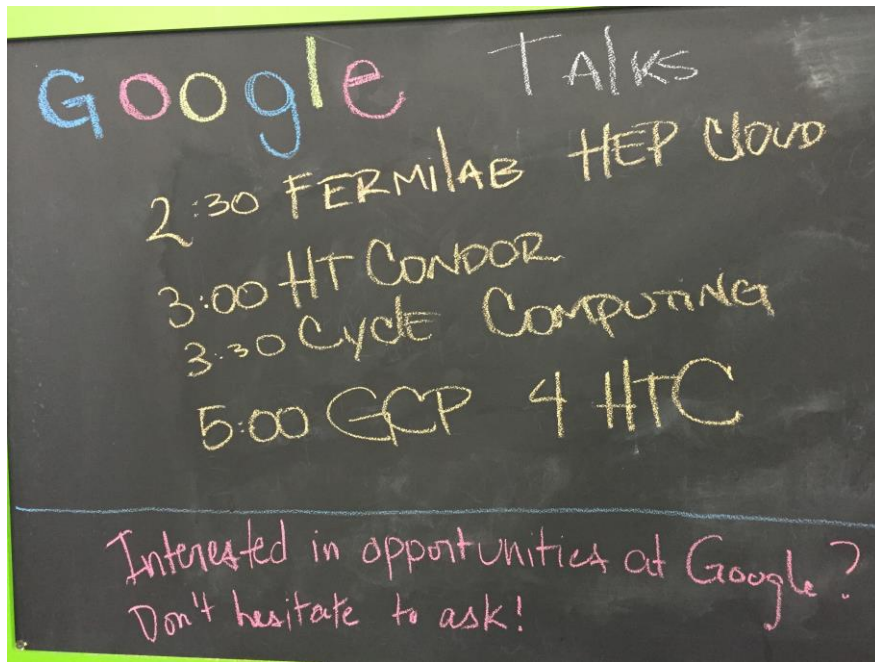 Google Talks
2:30 FERMILAB HEP Cloud
3:00 HT CONDOR
3:30 Cycle Computing
5:00 GCP 4 HTC
Interested in opportunities at Google?
Don't hesitate to ask!